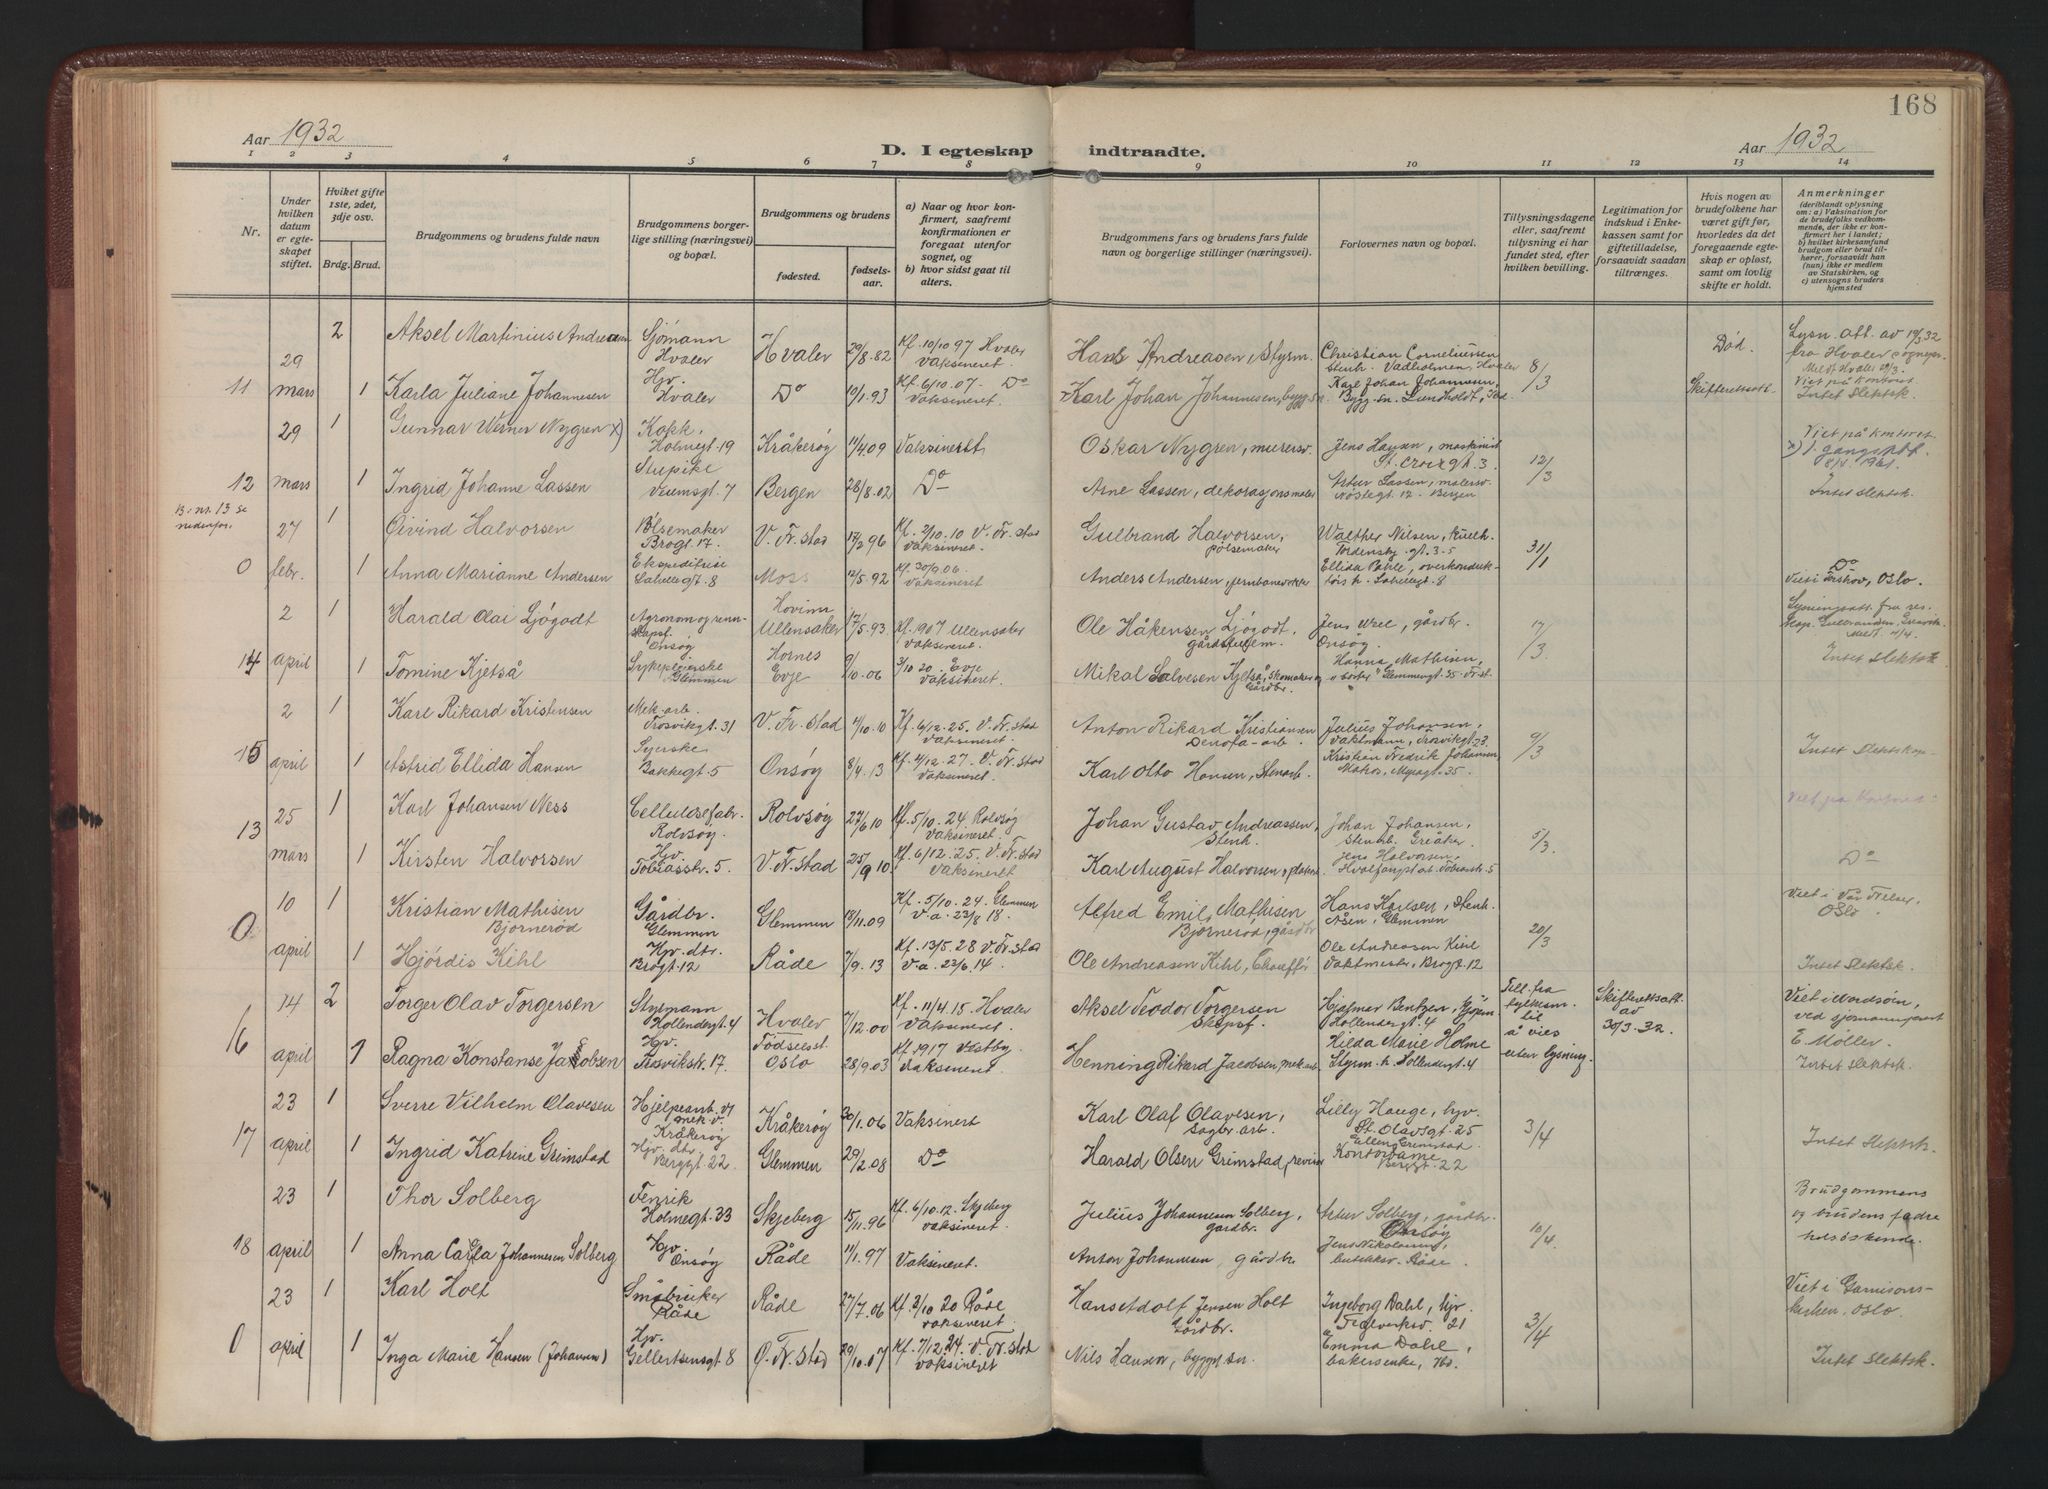 168
Aar 1932
D. I egteskap indtraadte.
Aar 1932
1 2 3 4 5 6 7 8 9 10 11 12 13 14
Nr.
Under hvilken datum er egteskapet stiftet.
Hviket gifte 1ste, 2det, 3dje osv.
Brdg. Brud.
Brudgommens og brudens fulde navn
Brudgommens borgerlige stilling (næringsvei) og bopæl.
Brudgommens og brudens
fødested.
fødselsaar.
a) Naar og hvor konfirmert, saafremt konfirmationen er foregaat utenfor sognet, og
b) hvor sidst gaat til alters.
Brudgommens fars og brudens fars fulde navn og borgerlige stillinger (næringsvei).
Forlovernes navn og bopæl.
Tillysningsdagene eller, saafremt tillysning ei har fundet sted, efter hvilken bevilling.
Legitimation for indskud i Enkekassen samt for giftetilladelse, forsaavidt saadan tiltrænges.
Hvis nogen av brudefolkene har været gift før, hvorledes da det foregaaende egteskap er opløst, samt om lovlig skifte er holdt.
Anmerkninger (deriblandt oplysning om: a) Vaksination for de brudefolks vedkommende, der ikke er konfirmert her i landet; b) hvilket kirkesamfund brudgom eller brud tilhører, forsaavidt han (hun) ikke er medlem av Statskirken, og c) utensogns bruders hjemsted
29 2 Aksel Martinius Andreassen Sjömann Hvaler Hvaler 29/8.82 Kf. 10/10 97 Hvaler Vaksineret Hans Andreasen, Styrm. Christian Corneliussen Stenh. Vadholmen, Hvaler 8/3 Død. Lysn. att. av 19/3 32 fra Hvaler sognepr. Meldt Hvaler 29/3.
11 mars 1 Karla Juliane Johannesen Hjv. Hvaler Do 19/1.93 Kf. 6/10.07 - Do Vaksineret. Karl Johan Johannesen, bygg.sn. Karl Johan Johannesen, Bygg.sn. Lundholdt, Skifterettsatt. Viet på kontoret Intet Slektsk.
29 1 Gunnar Werner Nygren x) Kokk. Holmegt. 19 Kråkerøy 11/4.09 Vaksineret Oskar Nygren, murersv. Jens Hansen, maskinist St. Croix gt. 3. 12/3 Viet på kontoret. x) 1 gangsatt. 8/1. 1961.
12 mars 1 Ingrid Johanne Lassen Stupike Veumsgt. 7 Bergen 28/8.02 Do Arne Lassen, dekorasjonsmaler Artur Lassen, malersv. Nöstegt. 12 - Bergen Intet slektsk.
B: nr. 13 se nedenfor.
27 1 Øivind Halvorsen Pölsemaker Brogt. 17. V. Fr. stad 17/2 96 Kf. 2/10.10 V. Fr. stad Vaksineret. Gulbrand Halvorsen, pölsemaker Walther Nilsen, Tordensk. gt. 3-5 31/1
0 febr. 1 Anna Marianne Andersen Ekspeditrise gt. 8 Moss 12/5.92 Kf. 30/9.06. Vaksineret Anders Andersen, jernbanearbeider Ellida Dahle, overkonduktörs h. gt. 8 Do Viet i Torshov, Oslo.
2 1 Harald Olai Ljøgodt Agronom og rennskapsf. Onsøy Hovinm Ullensaker 17/5.93 Kf. 1907 Ullensaker Vaksineret. Ole Håkensen Ljøgodt, gårdbr. Jens Wiel, gårdbr. Onsøy. 17/3. Lysningsatt. fra res.
14 april 1 Tomine Kjetså Sykepleierske Glemmen Hornes Evje 9/10.06 3/10 20. Evje Vaksineret. Mikal Salvesen Kjetså, Skomaker og Gårdbr. Hanna Mathisen, Glemmengt. 35. Fr.st. Intet Slektsk
2 1 Karl Rikard Kristensen Mek. arb. Trosvikgt. 31 V. Fr. Stad 4/10.10 Kf. 6/12.25. V. Fr. stad Vaksineret. Anton Rikard Kristiansen Denofa-arb. Julius Johansen, Vaktmann, Trosvikgt. 23. 9/3
15 april 1 Astrid Ellida Hansen Syerske Bakkegt. 5 Onsøy 8/4.13 Kf. 4/12.27. V. Fr. Stad Vaksineret. Karl Otto Hansen, Stenarb. Kristian Fredrik Johansen, Myragt. 35. Intet Slektskap
25 1 Karl Johansen Ness Cellulosefabr. Rolvsøy. Rolvsøy 27/6 10 Kf. 5/10.24 Rolvsøy Vaksineret. Johan Gustav Andreassen, Stenh. Johan Johansen, Stenarb. Greåker. 5/3. Viet på kontoret.
13 mars 1 Kirsten Halvorsen Hjv Tobiasstr. 5. V. Fr. Stad 25/9 10 Kf. 6/12.25. V. Fr. Stad Vaksineret Karl August Halvorsen, platearb. Jens Halvorsen, Hvalfangstarb. Tobiasstr. 5 Do
10 1 Kristian Mathisen Bjørnerød Gårdbr. Glemmen Glemmen 18/11.09 Kf. 5/10.24. Glemmen V.a. 23/8 18. Alfred Emil Mathisen Bjørnerød, gårdbr. Hans Karlsen, Stenh. Åsen, Glemmen 20/3 Viet i Vår Frelser, Oslo.
0 april 1 Hjørdis Kihl Hjv. dtr. Brogt. 12 Råde 7/9.13 Kf. 13/5.28 V. Fr. Stad V.a. 23/6.14. Ole Andreasen Kihl, Chauffør Ole Andreasen Kihl Vaktmestr., Brogt. 12 Intet Slektsk.
14 2 Torger Olav Torgersen Styrmann Hollendergt. 4 Hvaler 7/12.00 Kf. 11/4.15. Hvaler Vaksineret. Aksel Teodor Torgersen Skipsf. Hjalmar Bentzen, Sjöm Hollendergt. 4 Till. fra fylkesm. til å vies uten lysning. Skifterettsatt. av 30/3.32. Viet i Nordsöen, ved sjömannsprest E. Möller.
16 april 1 Ragna Konstanse Jacobsen Hjv. Trosvikstr. 17. Födselsst. Oslo 28/9.03 Kf. 1917 Vestby. Vaksineret Henning Rikard Jacobsen, mek. arb. Hilda Marie Holme Styrm. h. Hollendergt. 4 Intet slektsk.
23 1 Sverre Vilhelm Olavesen Hjelpearb. v/ mek. v. Kråkerøy Kråkerøy 30/1.06 Vaksinert Karl Olaf Olavesen, Sagbr. arb. Lilly Hauge, hjv. St. Olavsgt. 25 3/4
17 april 1 Ingrid Katrine Grimstad Hjv. dtr. Berggt. 22. Glemmen 29/2.08 Do Harald Olsen Grimstad, revisor Ellen Grimstad Kontordame, Berggt. 22 Intet Slektsk.
23 1 Thor Solberg Fenrik Holmegt. 33 Skjeberg 15/11.96 Kf. 6/10.12. Skjeberg Vaksineret. Julius Johannesen Solberg, gårdbr. Artur Solberg, gårdbr. Onsøy 10/4. Brudgommens og brudens fedre halvsøskende.
18 april 1 Anna Carla Johannesen Solberg Hjv. Onsøy Råde 11/1.97 Vaksineret. Anton Johannesen, gårdbr. Jens Nikolaisen, butikksv. Råde.
23 1 Karl Holt Småbruker Råde Råde 27/7.06 Kf. 3/10 20 Råde Vaksineret. Hans Adolf Jensen Holt Gårdbr. Ingeborg Dahl, hjv. Teglverksv. 21 3/4 Viet i Garnisonskirken, Oslo.
0 april 1 Inga Marie Hansen (Johansen) Hjv. Gellertsensgt 8 Ø. Fr. Stad 29/10.07 Kf. 7/12.24. V. Fr. Stad Vaksineret Nils Hansen, byggst.sn. Emma Dahl, bakersenke, Intet Slektsk.